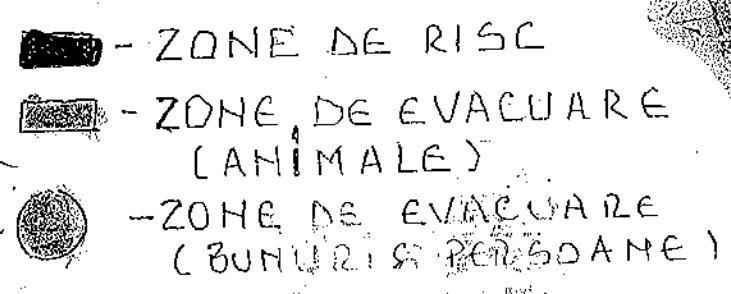 - ZONE DE RISC
- ZONE DE EVACUARE
(ANIMALE)
- ZONE DE EVACUARE
(BUNURI SI PERSOANE)